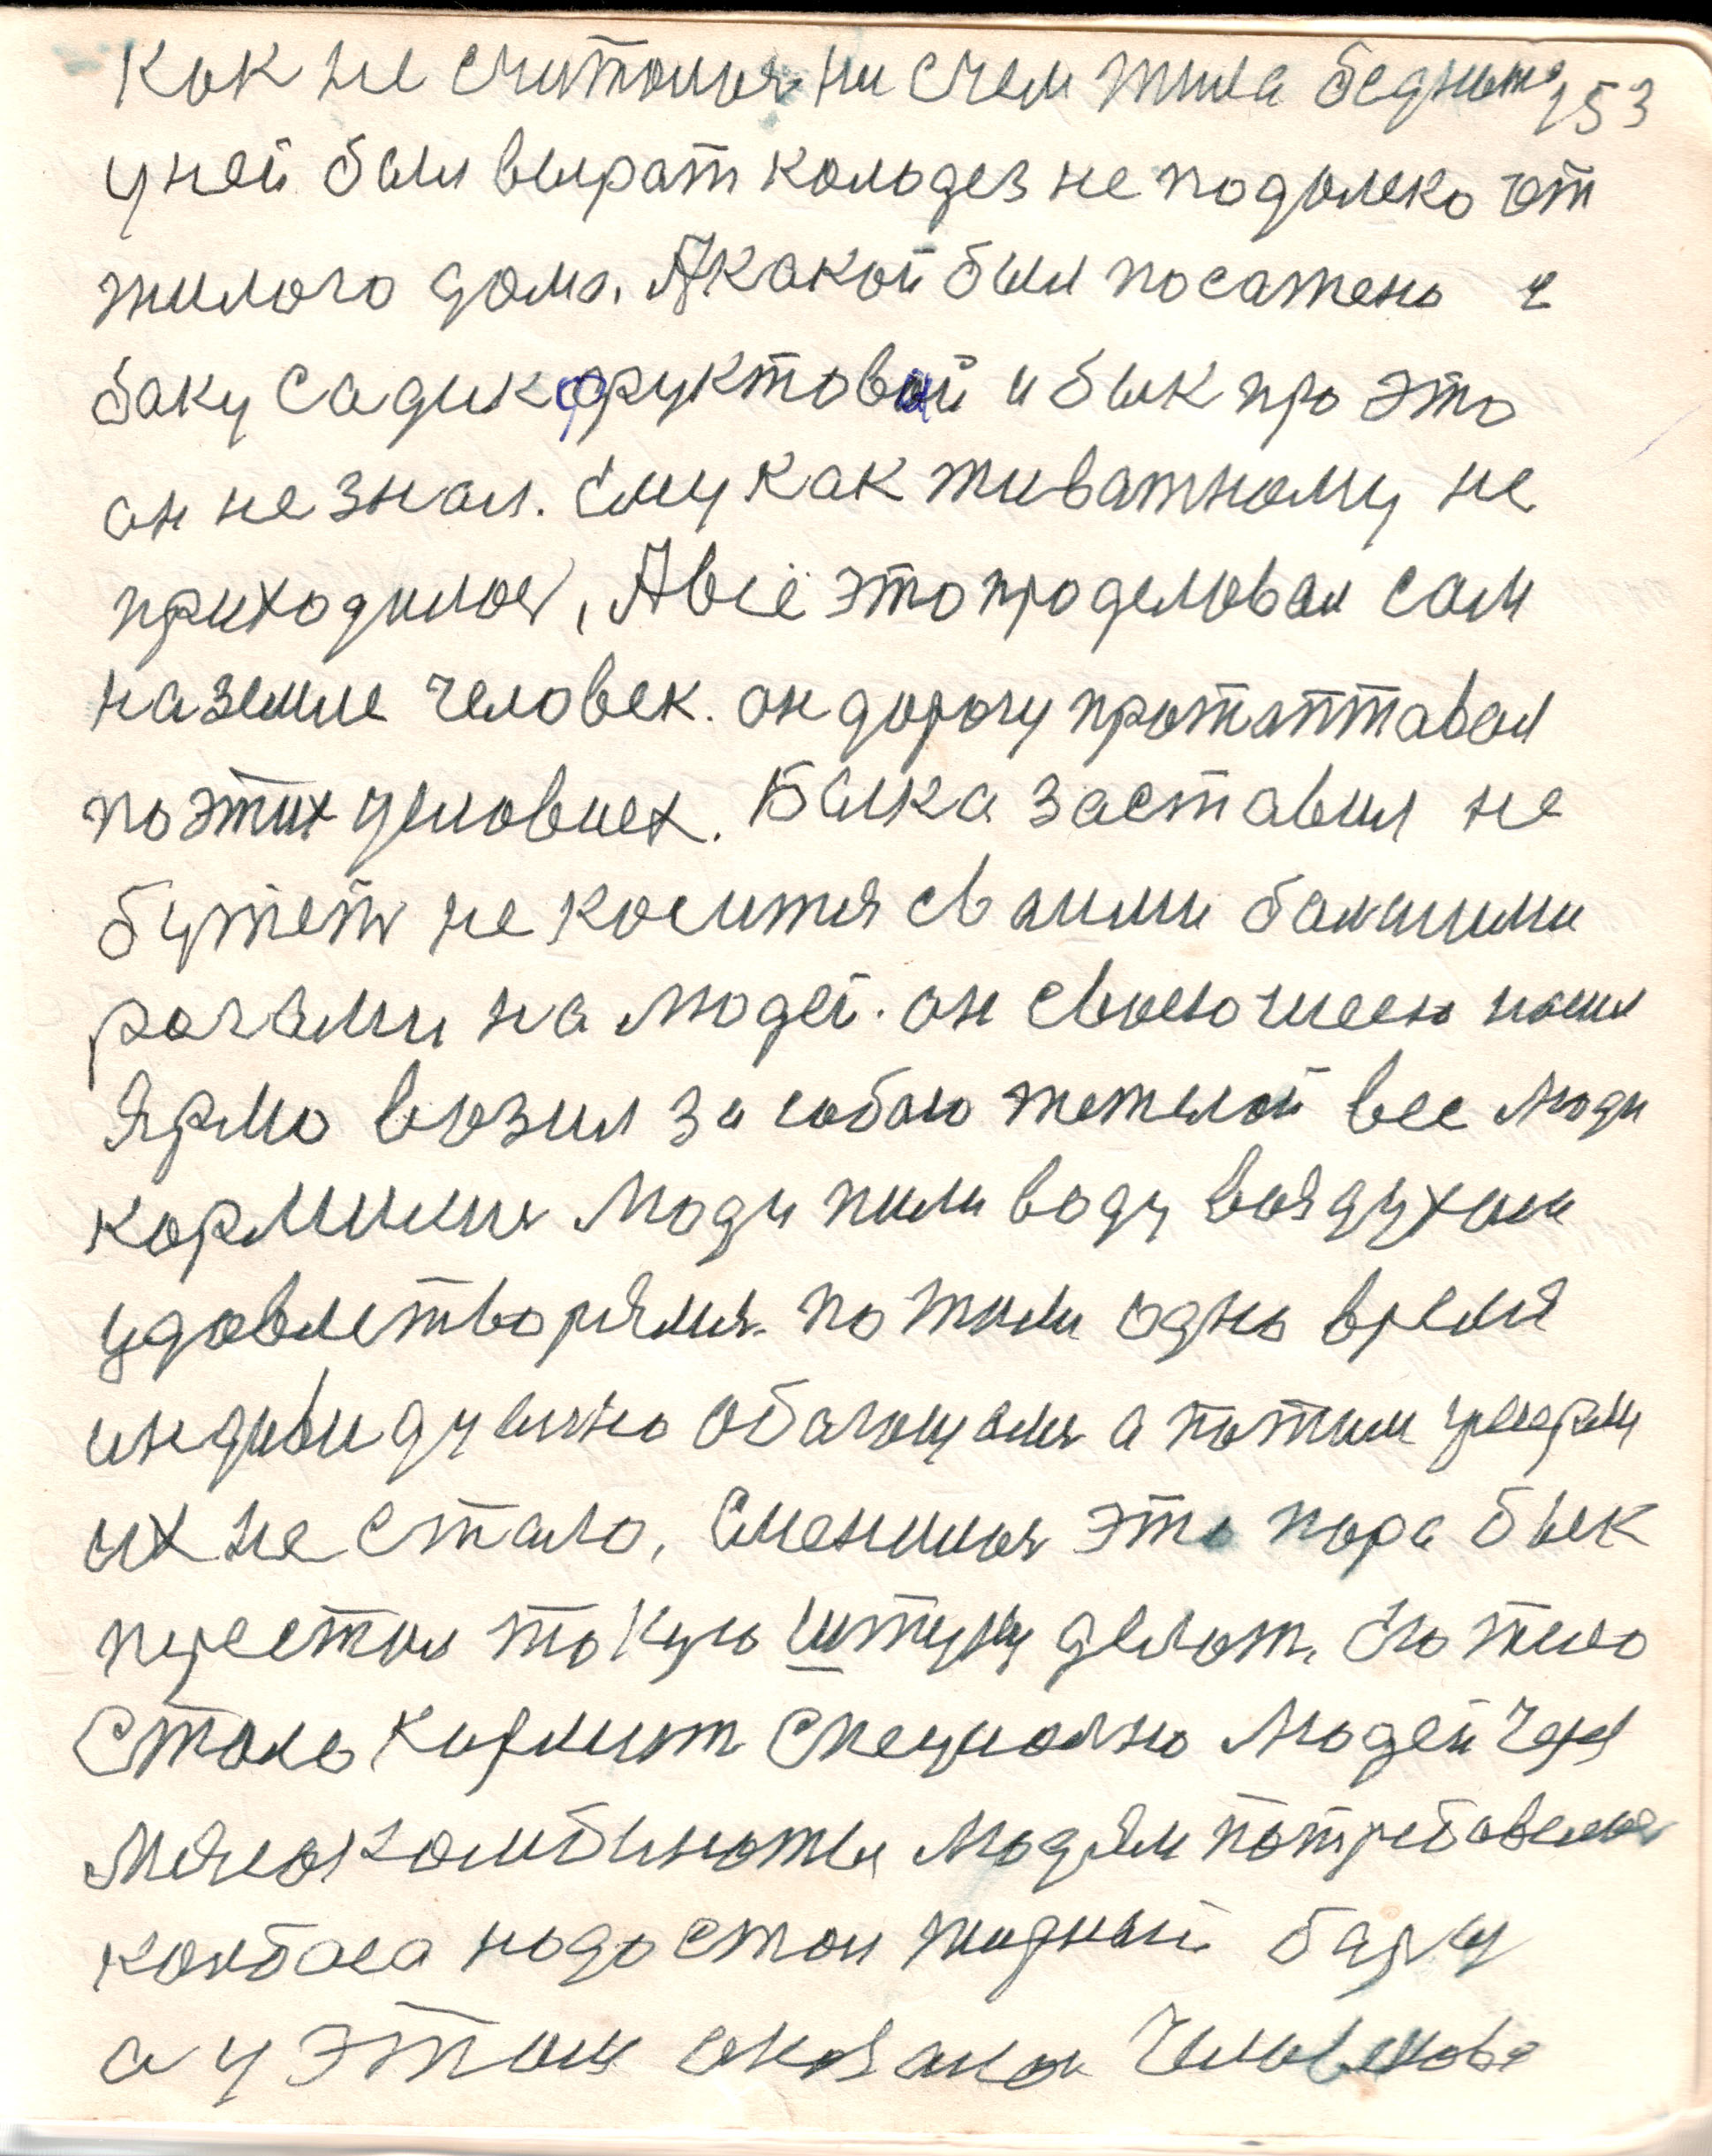 Как не считался ни счем жила бедныто 153
у ней был вырат кольодез не подолеко от
жилого дома. А какой был посажень с
баку садик фруктовый и бык про это
он не знал. Ему как живатному не
приходилос, А всё это проделовал сам
на земле человек. он дорогу протаптавал
по этих условиех. Быка заставил не
бутет не косится сваими балшими
рогами на людей. он своею шеею носил
Ярмо возил за собою тежелой все люди
кормили люди пили воду воздухом
удовлетворялис. пожили одно время
индивидуално обагощалис а потом умерли
их не стало, Сменилос это пора бык
перестал такую штуку делат. Его тело
Стало кормит специално людей через
мясокомбинаты людям потребовалося
колбаса надо стол жирный борщ
а у этом